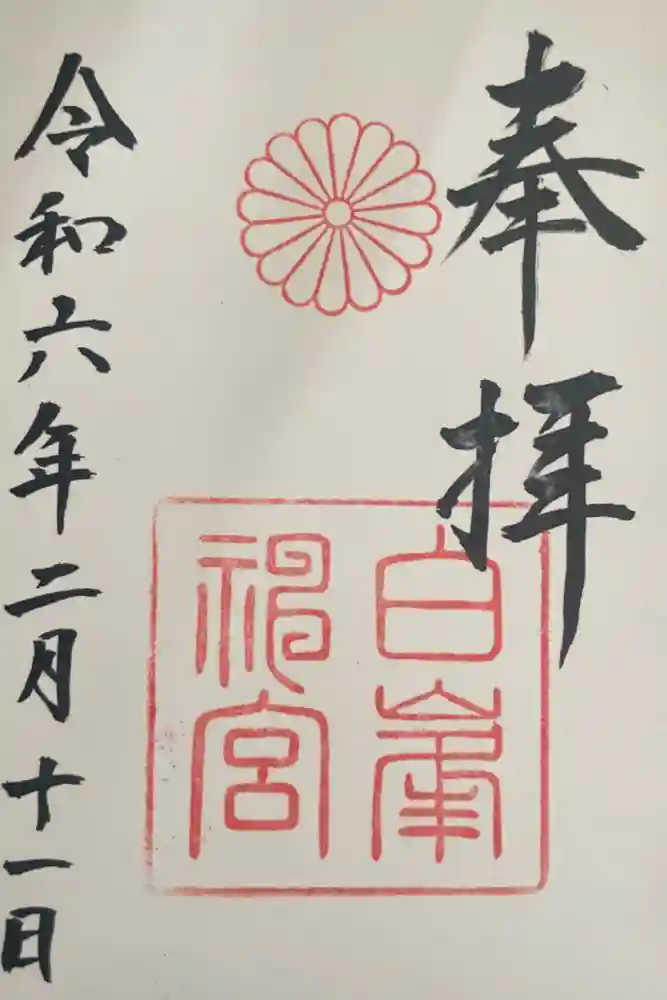 奉拝
白峯
神宮
令和六年二月十一日